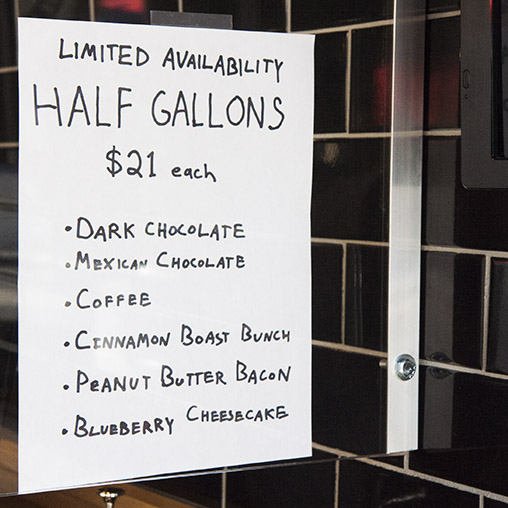 LIMITED AVAILABILITY
HALF GALLONS
$21 each
• DARK CHOCOLATE
• MEXICAN CHOCOLATE
• COFFEE
• CINNAMON BOAST BUNCH
• PEANUT BUTTER BACON
• BLUEBERRY CHEESECAKE